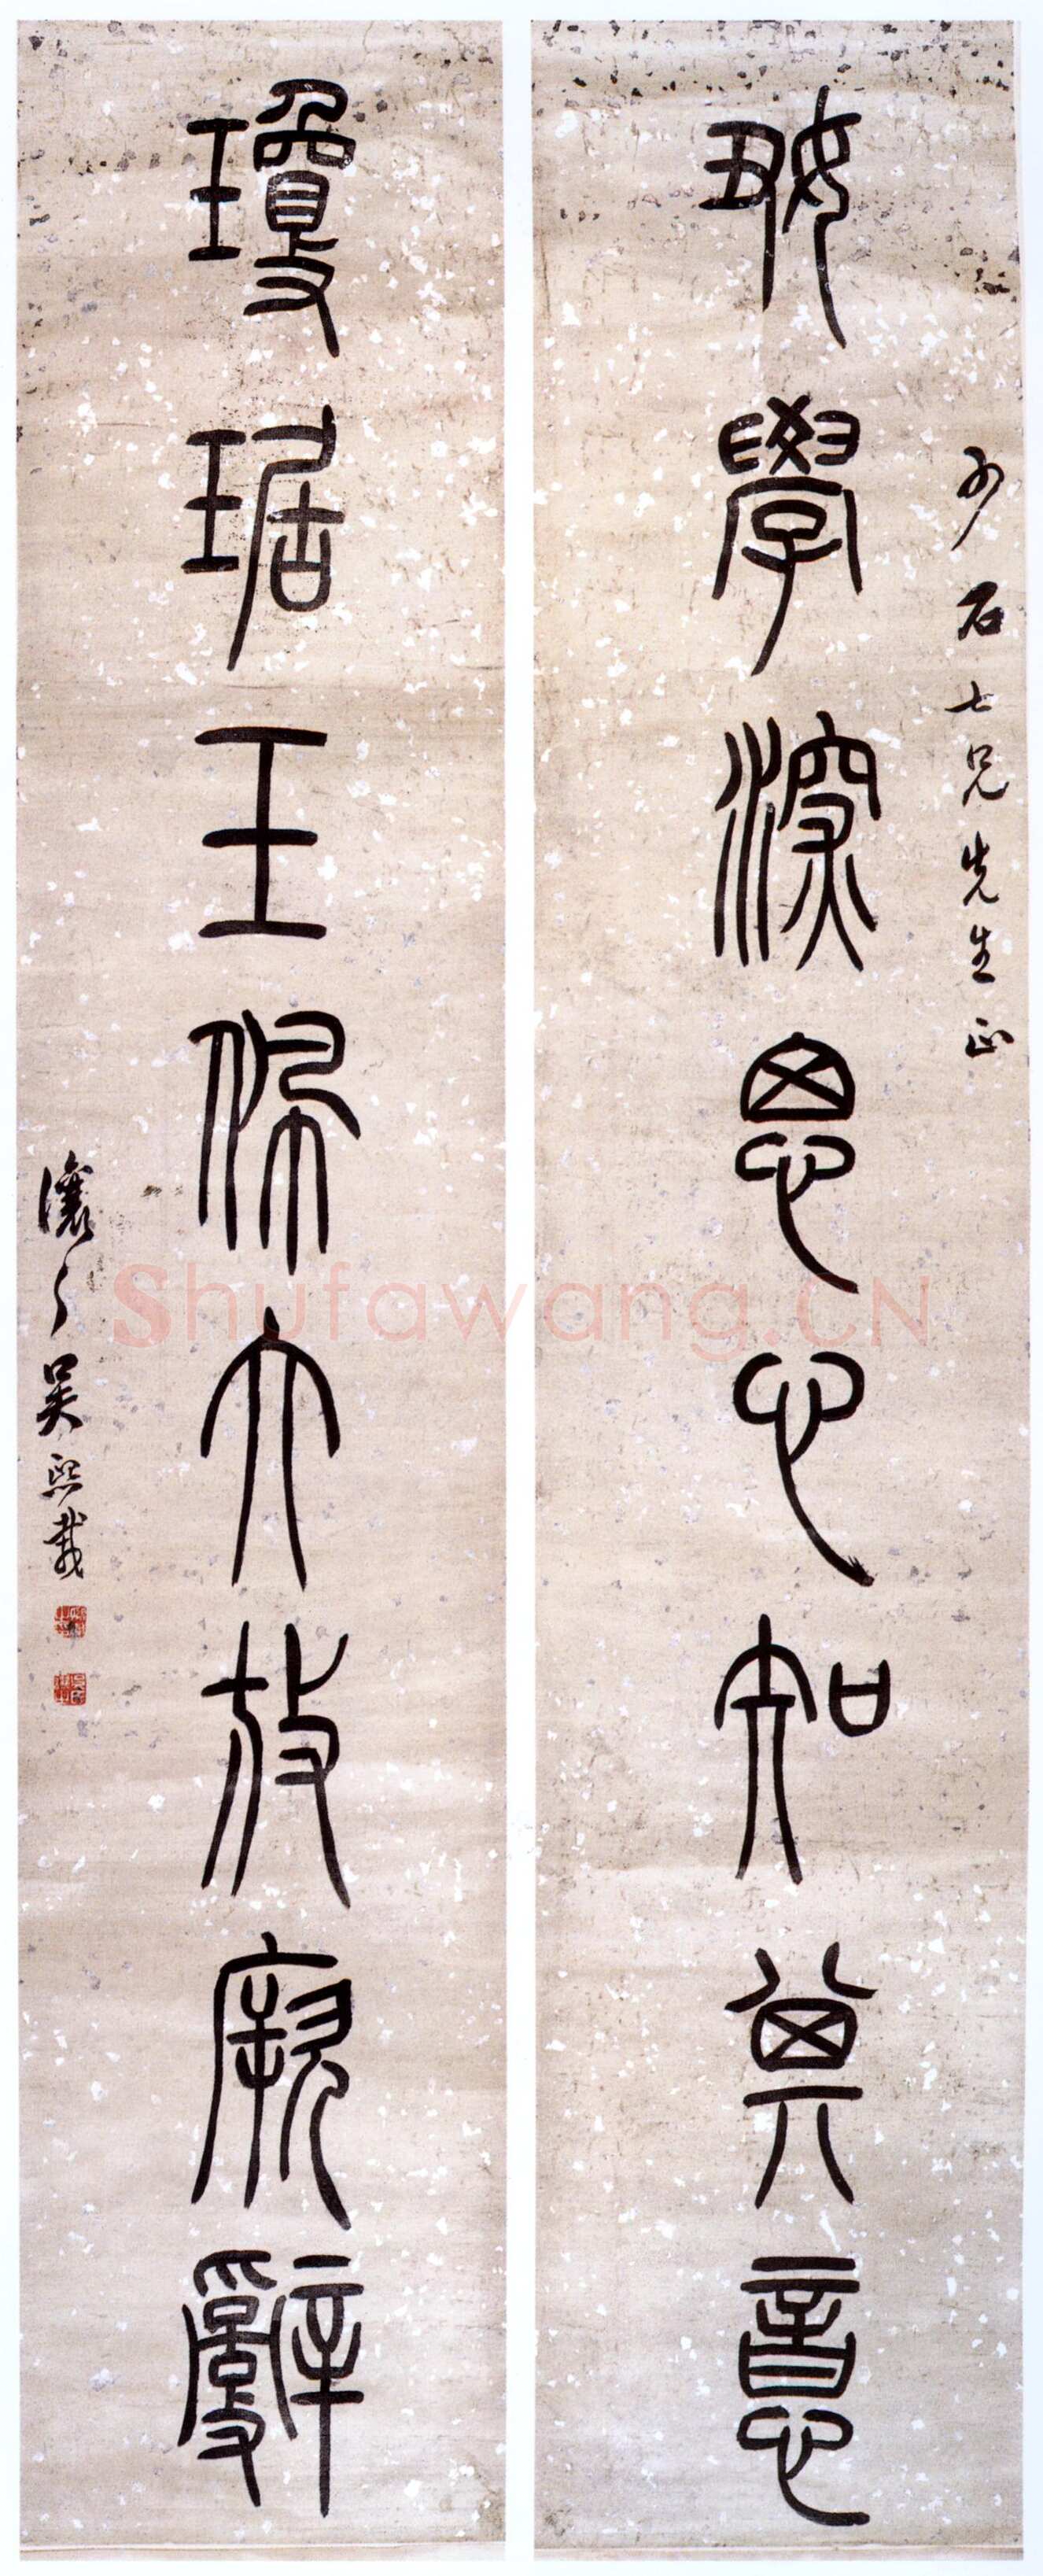 少石七兄先生正
好學深思心知其意
瓊琚玉佩大放厥辭
讓之吳熙載
Shufawang.CN